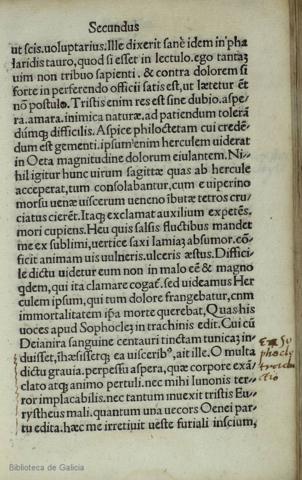 Secundus
ut scis.uoluptarius.Ille dixerit sanè idem in pha
laridis tauro, quod si esset in lectulo.ego tantaʒ
uim non tribuo sapienti. & contra dolorem si
forte in perferendo officii satis est, ut lætetur ēt
nō postulo. Tristis enim res est sine dubio.aspe/
ra.amara.inimica naturæ.ad patiendum tolerā
dúmq; difficilis. Aspice philoctetam cui credē/
dum est gementi.ipsum enim herculem uiderat
in Oeta magnitudine dolorum eiulantem. Ni/
hil igitur hunc uirum sagittæ quas ab hercule
acceperat, tum consolabantur, cum e uiperino
morsu uenæ uiscerum ueneno ībutæ tetros cru/
ciatus cierēt.Itaq; exclamat auxilium expetēs.
mori cupiens. Heu quis salsis fluctibus mandet
me ex sublimi, uertice saxi iamiaʒ absumor.cō/
ficit animam uis uulneris.ulceris æstus. Diffici/
le dictu uidetur eum non in malo eē & magno
qdem, qui ita clamare cogat᷑. sed uideamus Her
culem ipsum, qui tum dolore frangebatur, cum
immortalitatem ip̄a morte querebat. Quas his
uoces apud Sophoclez in trachinis edit. Cui cū
Deianira sanguine centauri tinctam tunicaʒ in/
duisset, ihæsissetqʒ ea uiscerib⁹, ait ille. O multa
dictu grauia. perpessu aspera, quæ corpore exā/
clato atq; animo pertuli.nec mihi Iunonis ter/
ror implacabilis.nec tantum inuexit tristis Eu/
rystheus mali.quantum una uecors Oenei par/
tu edita.hæc me irretiuit ueste furiali inscium,
Ex So
phocle
Biblioteca de Galicia